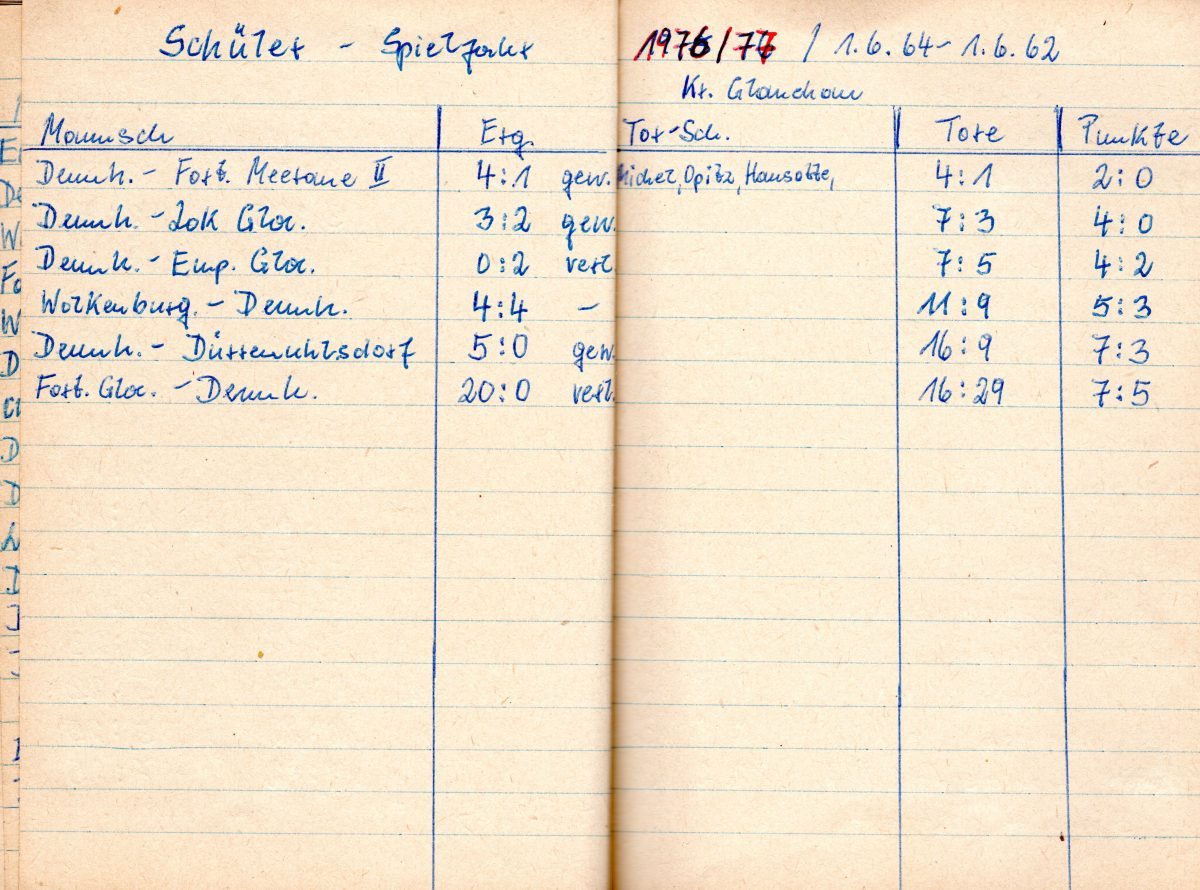 Schüler - Spieljahr 1976/77 / 1.6.64 - 1.6.62
Kr. Glauchau
Mannsch Erg. Tor-Sch. Tore Punkte
Dennh. - Fort. Meerane II 4:1 gew. Michel, Opitz, Hansotte, 4:1 2:0
Dennh. - Lok Glau. 3:2 gew. 7:3 4:0
Dennh. - Emp. Glau. 0:2 verl. 7:5 4:2
Wolkenburg. - Dennh. 4:4 - 11:9 5:3
Dennh. - Dürrenuhlsdorf 5:0 gew. 16:9 7:3
Fort. Glau. - Dennh. 20:0 verl. 16:29 7:5